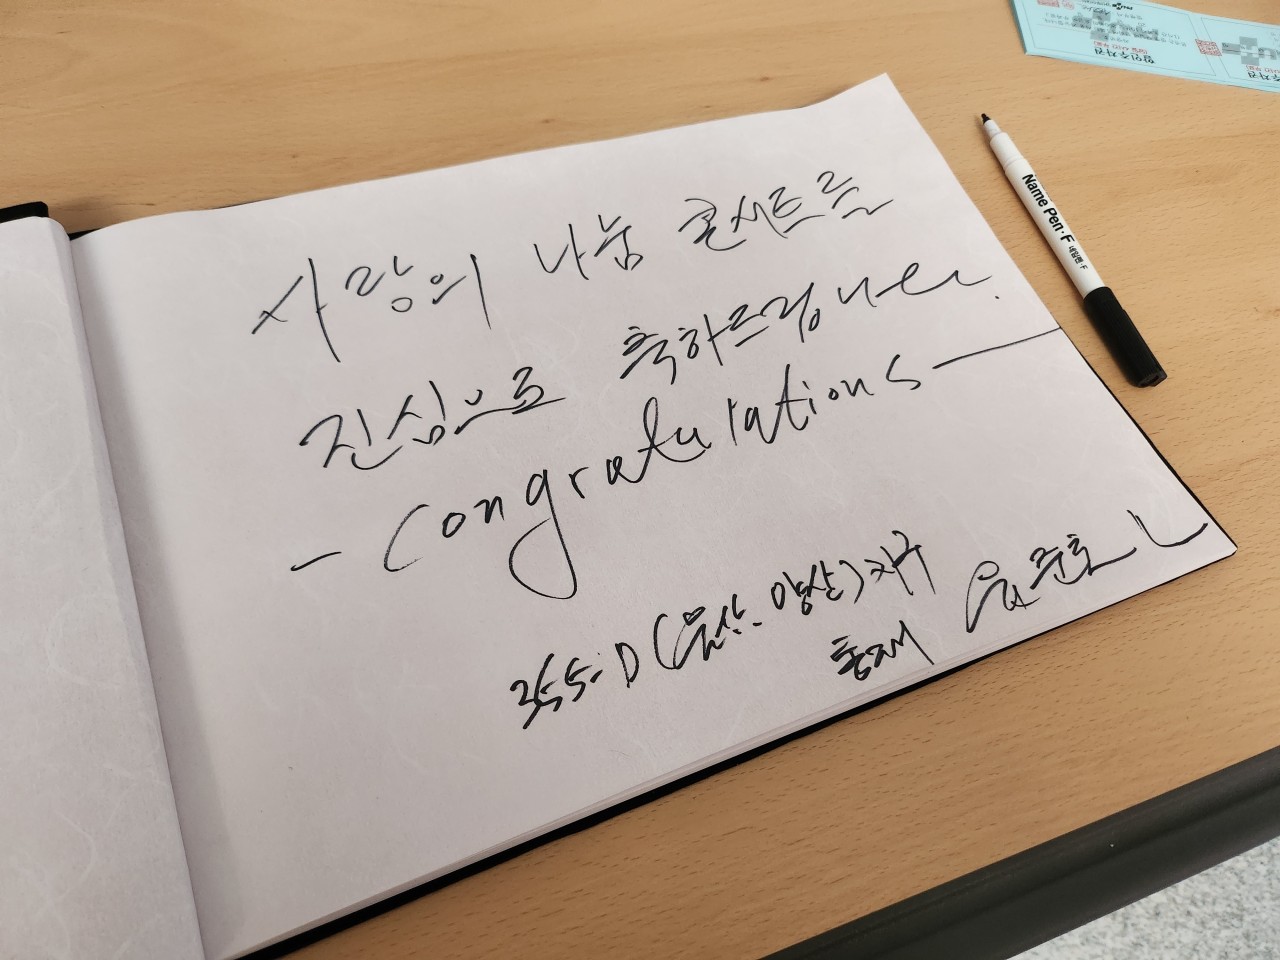 사랑의 나눔 콘서트를
진심으로 축하드립니다.
- Congratulations -
355-D(울산.양산)지구
총재
Name Pen·F
네임펜·F
할인주차권